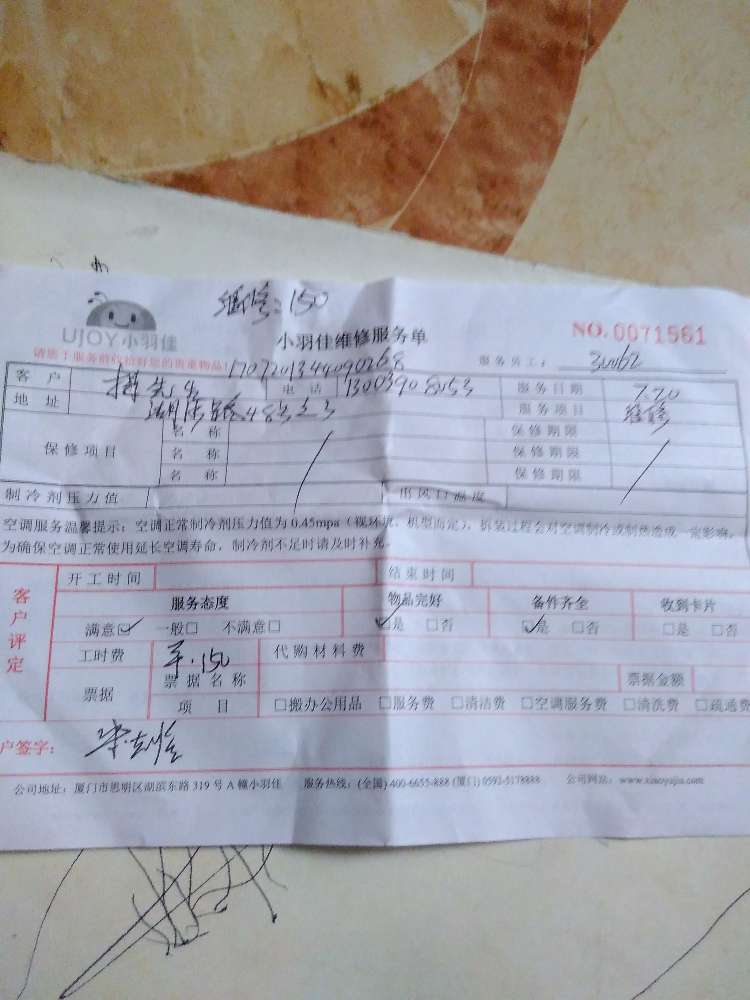 维修:150
UJOY小羽佳
小羽佳维修服务单
NO.0071561
请您于服务前收拾好您的贵重物品!
1707201344090268
服务员工:
客户 先生 电话 服务日期 7.20
地址 服务项目 维修
保修项目 名称 保修期限
名称 保修期限
名称 保修期限
制冷剂压力值 出风口温度
空调服务温馨提示:空调正常制冷剂压力值为0.45mpa(视环境、机型而定),拆装过程会对空调制冷或制热造成一定影响,
为确保空调正常使用延长空调寿命,制冷剂不足时请及时补充。
客户评定
开工时间 结束时间
服务态度 物品完好 备件齐全 收到卡片
满意☑ 一般□ 不满意□ ☑是 □否 ☑是 □否 □是 □否
工时费 150 代购材料费
票据 票据名称 票据金额
项目 □搬办公用品 □服务费 □清洁费 □空调服务费 □清洗费 □疏通费
户签字:
公司地址:厦门市思明区湖滨东路319号A幢小羽佳 服务热线:(全国)400-6655-888(厦门)0592-5178888 公司网站:www.xiaoyujia.com